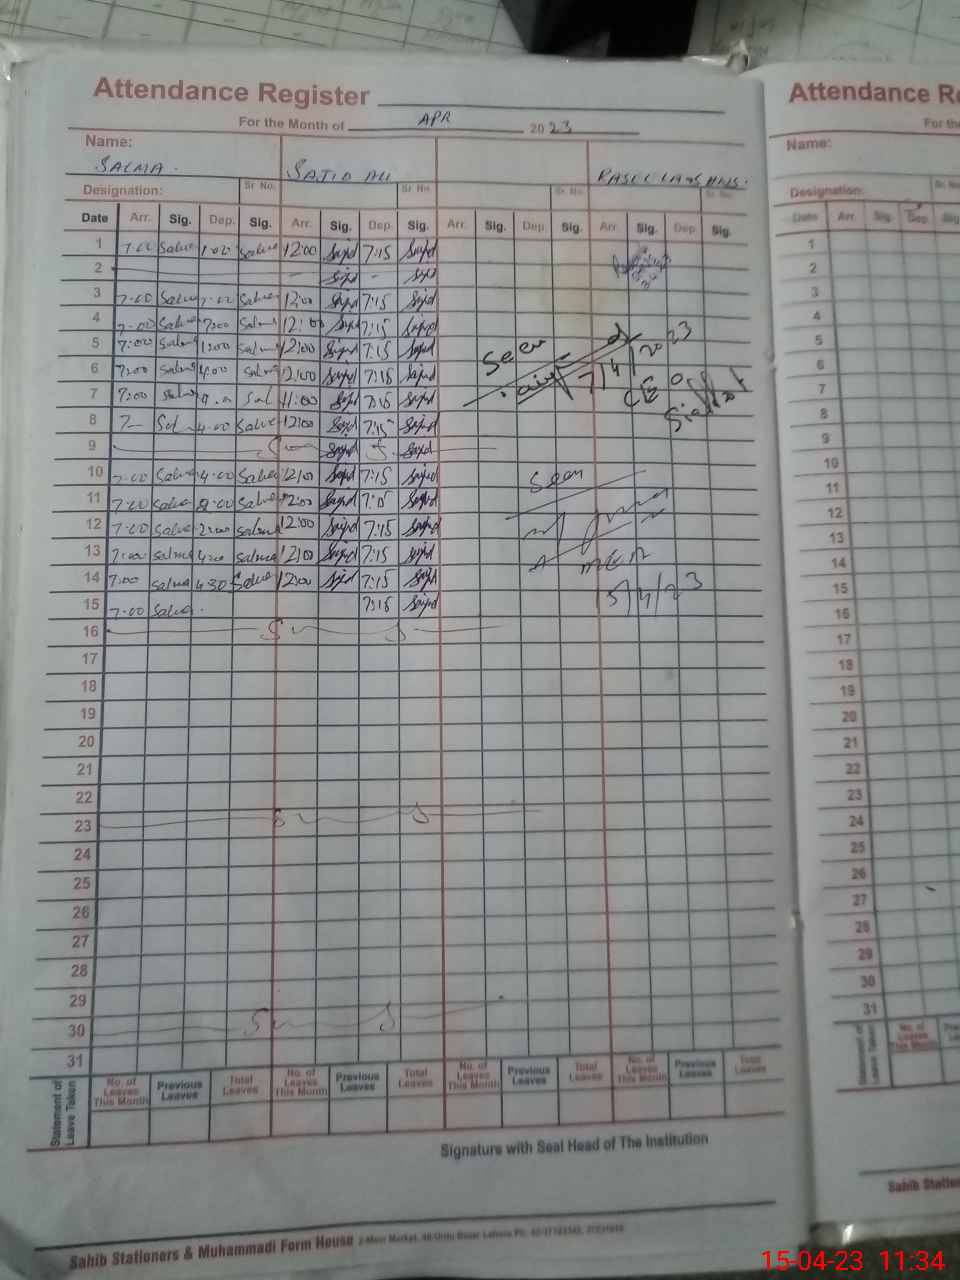 Attendance Register
For the Month of APR 2023
Name:
SALMA. SAJID ALI
Designation: Sr No. Sr No. Sr No. Sr No.
Date Arr. Sig. Dep. Sig. Arr. Sig. Dep. Sig. Arr. Sig. Dep. Sig. Arr. Sig. Dep. Sig.
1 7-00 Salma Salma 12:00 Sajid 7:15 Sajid
2 - Sajid - Sajid
3 7-00 Salma Salma 12:00 Sajid 7:15 Sajid
4 7-00 Salma Salma 12:00 Sajid 7:15 Sajid
5 7:00 Salma Salma 12:00 Sajid 7:15 Sajid
Seen
6 7:00 Salma 4:00 Salma 12:00 Sajid 7:15 Sajid
7/4/2023
7 7:00 Salma Sal 11:00 Sajid 7:15 Sajid
CEO
Sialkot
8 7- Sal 4-00 Salma 12:00 Sajid 7:15 Sajid
9 S Sajid S Sajid
10 7-00 Salma 4-00 Salma 12:00 Sajid 7:15 Sajid
Seen
11 7-00 Salma Salma 12:00 Sajid Sajid
12 7-00 Salma 2:00 Salma 12:00 Sajid 7:15 Sajid
13 7:00 Salma Salma 12:00 Sajid 7:15 Sajid
14 7:00 Salma 4:30 Salma 12:00 Sajid 7:15 Sajid
15 7-00 Salma. 7:15 Sajid
15/4/23
16 S S
17
18
19
20
21
22
23 S S
24
25
26
27
28
29
30 S S
31
Statement of Leave Taken
No. of Leaves This Month Previous Leaves Total Leaves No. of Leaves This Month Previous Leaves Total Leaves No. of Leaves This Month Previous Leaves Total Leaves No. of Leaves This Month Previous Leaves Total Leaves
Signature with Seal Head of The Institution
Sahib Stationers & Muhammadi Form House
Attendance Re
For the
Name:
Designation: Sr No.
Date Arr. Sig. Dep. Sig.
1
2
3
4
5
6
7
8
9
10
11
12
13
14
15
16
17
18
19
20
21
22
23
24
25
26
27
28
29
30
31
Statement of Leave Taken
No. of Leaves This Month
Sahib Station
15-04-23 11:34